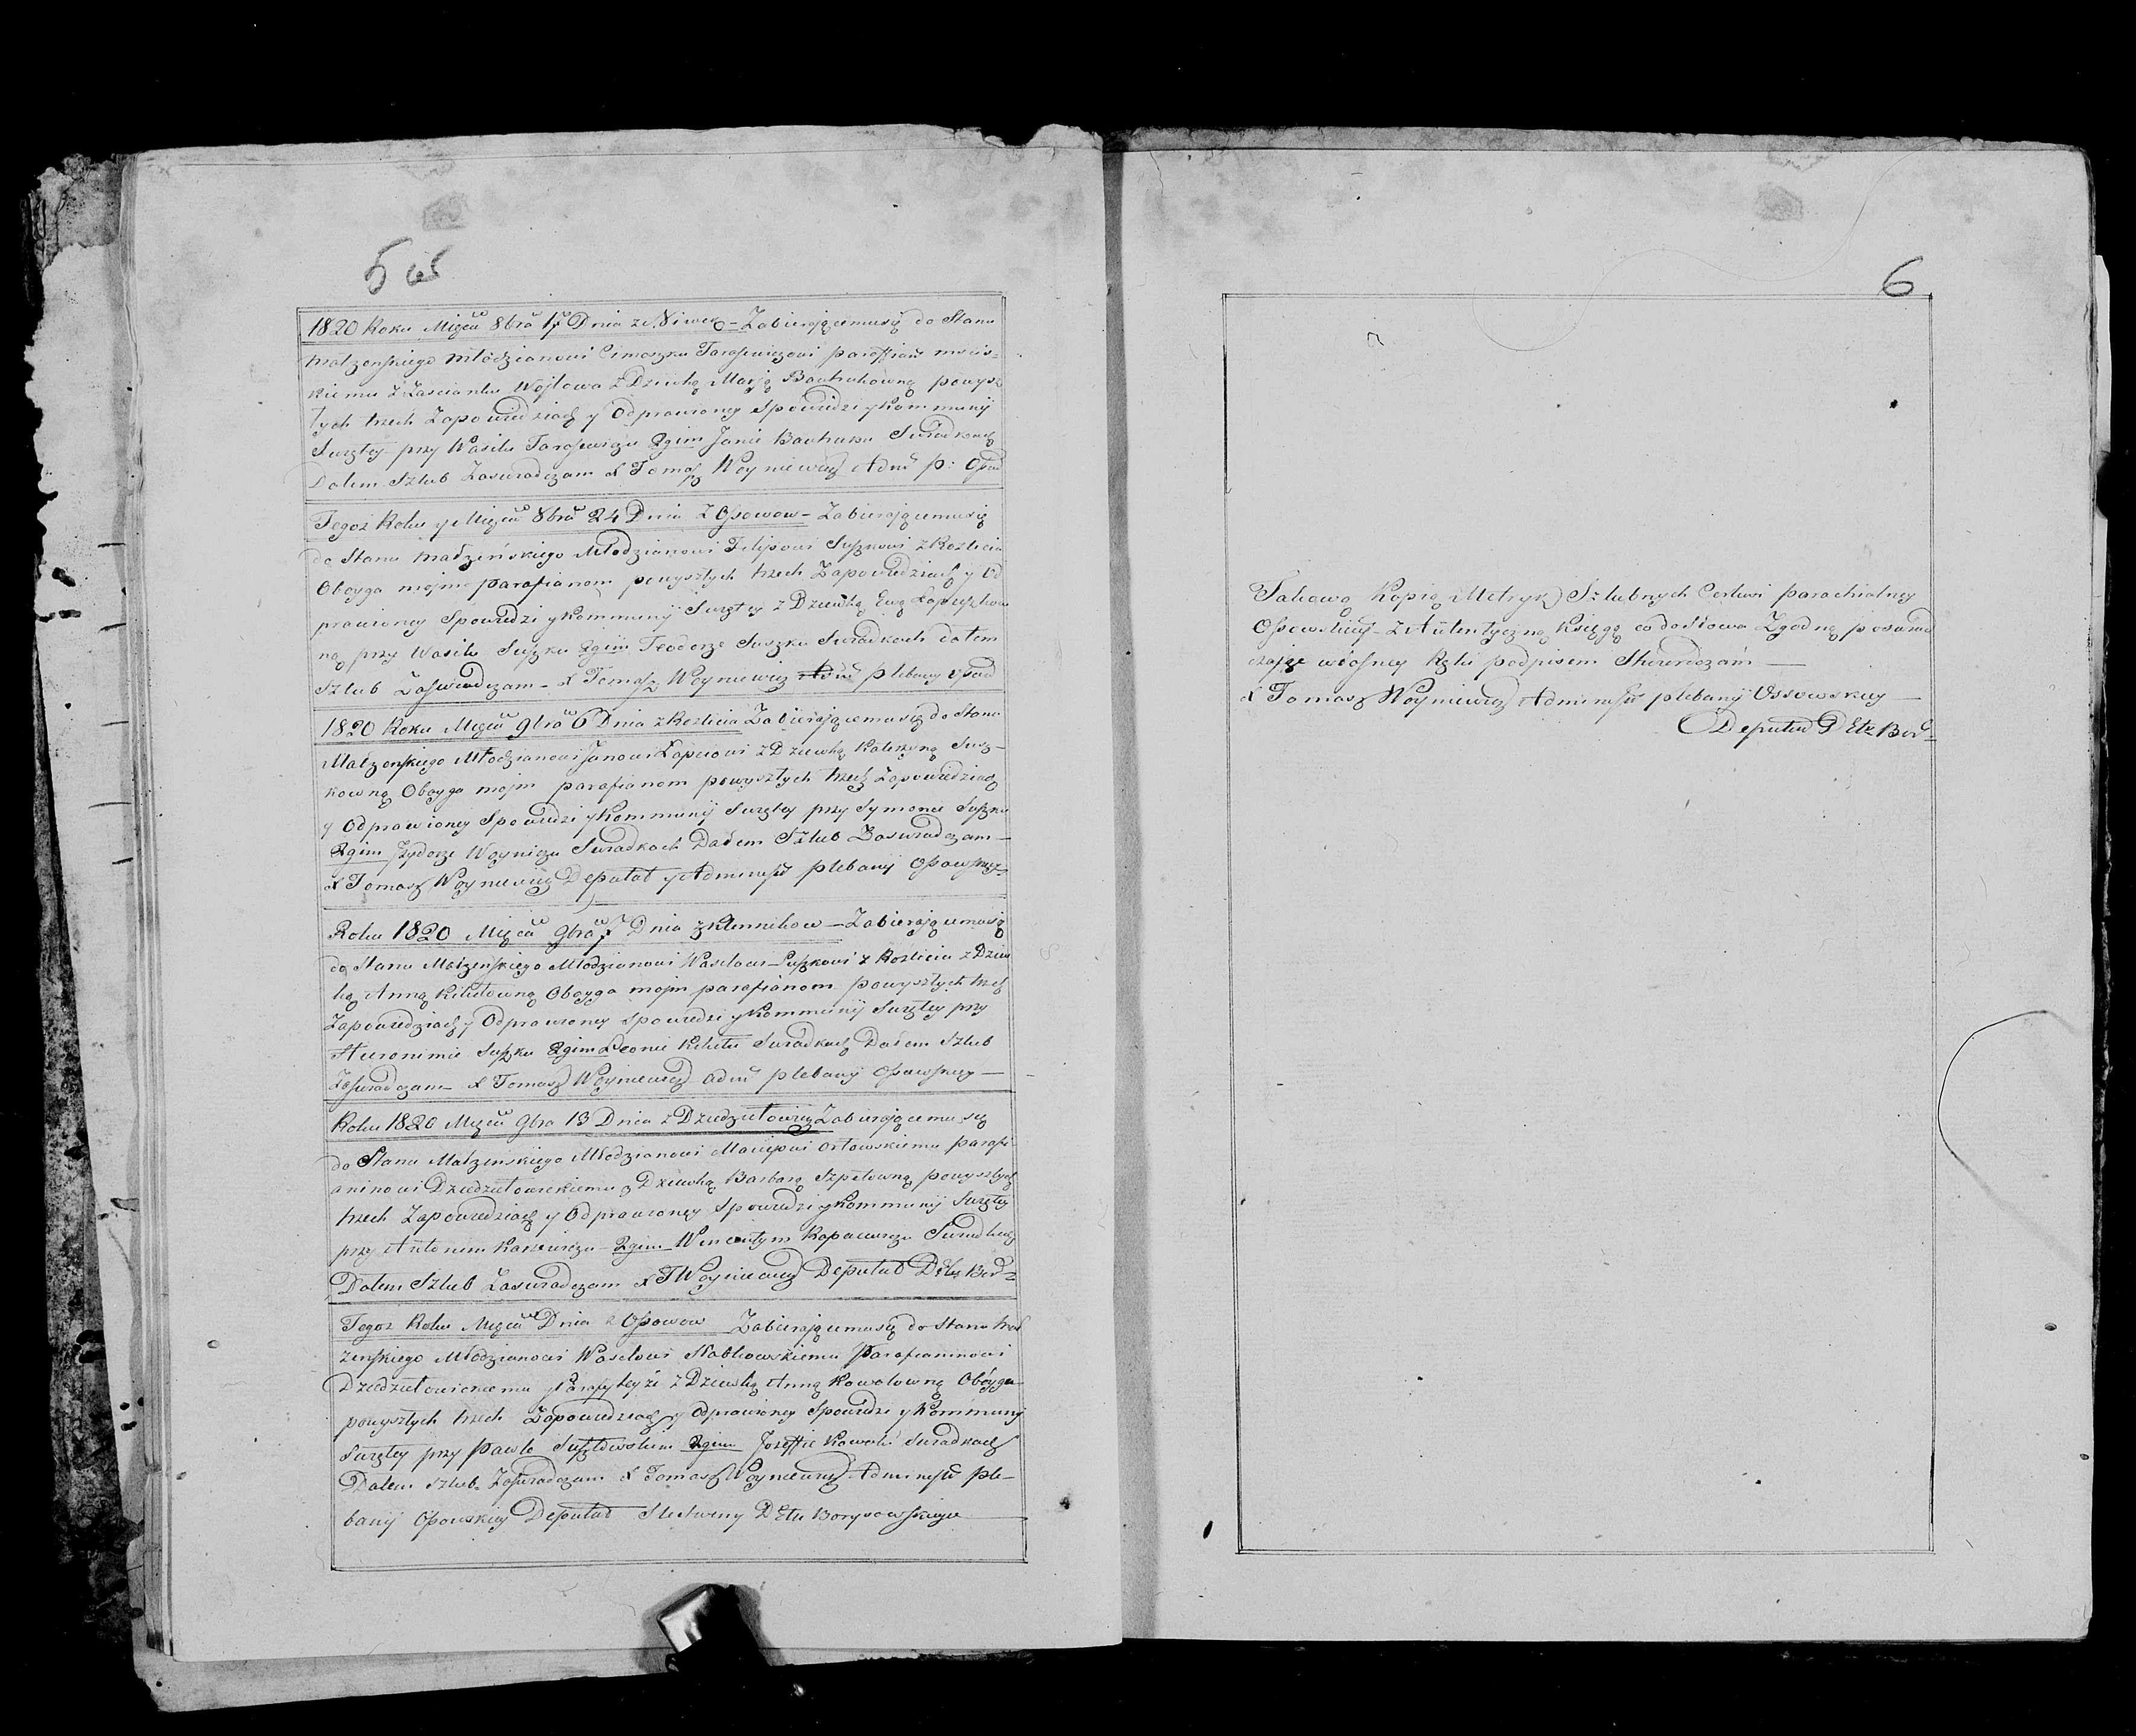 5 об
1820 Roku Mięcu 8bra 17 Dnia ze Niwek – Zabierającemusię do Stanu
małżenskiego młodzianowi Cimoszku Tarasewiczowi paraffianu mscis-
kiemu z Zascianku Wojtowa z Dziewką Marją Bautrukowną powysz
łych trzech Zapowiedziach y Odprawioney Spowiedzi y Kommunij
Swiętey przy Wasilu Tarasewiczu 2gim Janie Bautruku Swiadkach
Dałem Szlub Zaswiadczam X Tomasz Woyniewicz Admr p: Osow
Tegoż Roku y Mięcu 8bra 24 Dnia Z Ossowow – Zabierającemusię
do Stanu małżeńskiego Młodzianowi Filipowi Suszkowi z Kozlicia
Oboyga moim parafianom powyszłych trzech Zapowiedziach y Od
prawioney Spowiedzi y Kommunij Swiętey z Dziewką Ewą Łapciukow
ną przy Wasilu Suszku 2gim Teodorze Suszku Swiadkach dałem
Szlub Zaswiadczam – X Tomasz Woyniewicz Admr plebany Osow
1820 Roku Mięcu 9bra 6 Dnia z Kozlicia Zabierającemusię do Stanu
Małżenskiego Młodzianowi Janowi Łapciowi z Dziewką Katerzyną Susz-
kowną Oboyga moim parafianom powyszłych trzech Zapowiedziach
y Odprawioney Spowiedzi y Kommunij Swiętey przy Symonie Suszku
2gim Jzydorze Woyniczu Swiadkach Dałem Szlub Zaswiadczam –
X Tomasz Woyniewicz Deputat y Adminstr plebanij Ossowskiey
Roku 1820 Mięcu 9bra 7 Dnia z Klennikow – Zabierającemusię
do Stanu Małżenskiego Młodzianowi Wasilowi Suszkowi z Kozlicia z Dziew
ką Anną Kikiłowną Oboyga moim parafianom powyszłych trzech
Zapowiedziach y Odprawioney Spowiedzi y Kommunij Swiętey przy
Hieronimie Suszku 2gim Leonie Kikiłu Swiadkach Dałem Szlub
Zaswiadczam X Tomasz Woyniewicz admr plebanij Ossowskiey –
Roku 1820 Mięcu 9bra 13 Dnia z Dziedziułowicz Zabierającemusię
do Stanu Małżenskiego Młodzianowi Maciejowi Orłowskiemu parafi-
aninowi Dziedziułowickiemu z Dziewką Barbarą Szpilewną powyszłych
trzech Zapowiedziach y Odprawioney Spowiedzi y Kommunij Swiętey
przy Antonim Karzewiczu 2gim Wincentym Kopacewiczu Swiadkach
Dałem Szlub Zaswiadczam X T Woyniewicz Deputat Dktu Bor
Tegoż Roku Mięcu Dnia z Ossowow Zabierającemusię do Stanu mał
żenskiego Młodzianowi Wasilowi Parafianinowi
Dziedziułowickiemu y Parafij teyże z Dziewką Anną Kowalowną Oboyga
powyszłych trzech Zapowiedziach y Odprawioney Spowiedzi y Kommunij
Swiętey przy Pawle 2gim Jozeffie Kowalu Swiadkach
Dałem Szlub Zaswiadczam X Tomasz Woyniewicz Adminstr ple-
banij Ossowskiey Deputat Dktu Borysowskiego
6
Takową Kopią Metryk Szlubnych Cerkwi parachialney
Ossowskiey – z Autentyczną Księgą co do słowa Zgodną poswiad
czając własney Ręki podpisem Stwierdzam –
X Tomasz Woyniewicz Adminstr plebanij Ossowskiey
Deputat D Ktu Bor